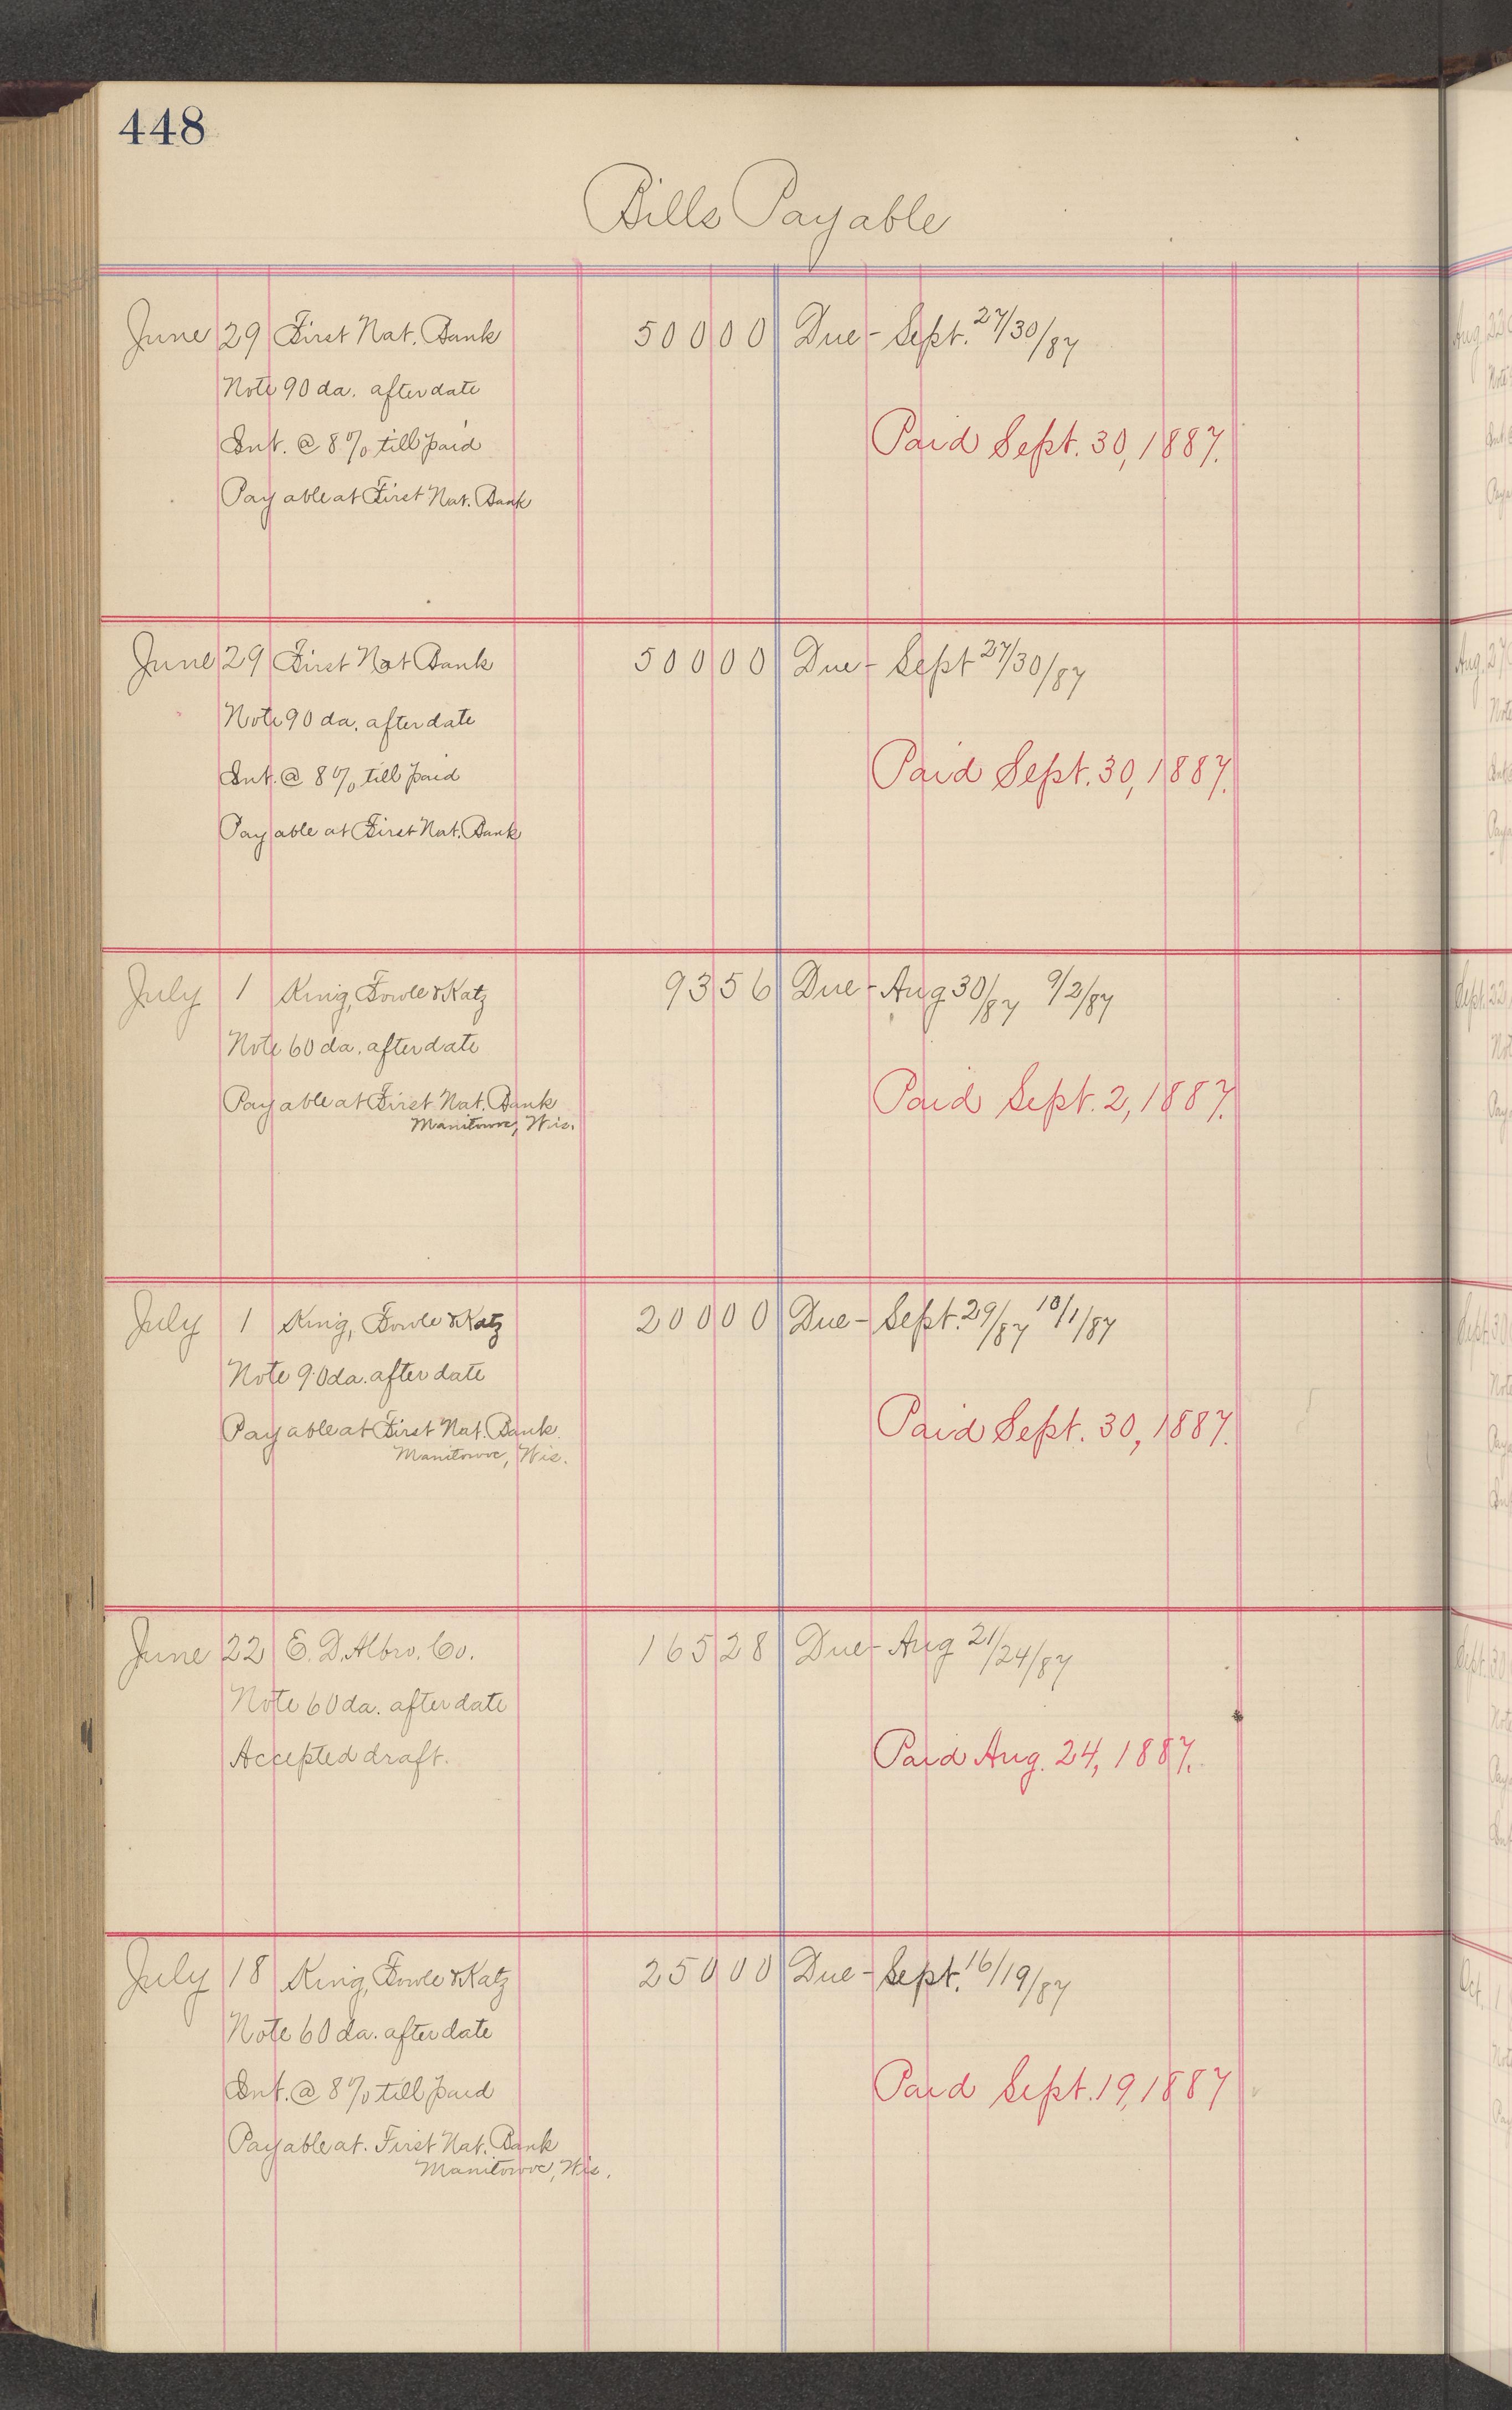 448
Bills Payable
June 29 First Nat. Bank 500 00 Due - Sept. 27/30/87
Note 90 da. after date
Int. @ 8% till paid Paid Sept. 30, 1887.
Payable at First Nat. Bank
June 29 First Nat Bank 500 00 Due - Sept 27/30/87
Note 90 da. after date
Int. @ 8% till paid Paid Sept. 30, 1887.
Payable at First Nat. Bank
July 1 King, Fowle & Katz 93 56 Due - Aug 30/87 9/2/87
Note 60 da. after date
Payable at First Nat. Bank Paid Sept. 2, 1887.
Manitowoc, Wis.
July 1 King, Fowle & Katz 200 00 Due - Sept. 29/87 10/1/87
Note 90 da. after date
Payable at First Nat. Bank. Paid Sept. 30, 1887.
Manitowoc, Wis.
June 22 E. D. Albro. Co. 165 28 Due - Aug 21/24/87
Note 60 da. after date
Accepted draft. Paid Aug. 24, 1887.
July 18 King, Fowle & Katz 250 00 Due - Sept. 16/19/87
Note 60 da. after date
Int. @ 8% till paid Paid Sept. 19, 1887
Payable at. First Nat. Bank
Manitowoc, Wis.